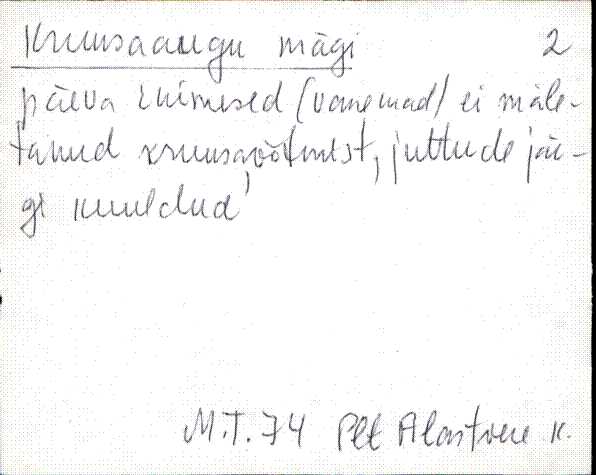 Kruusaaugu mägi 2
päeva inimesed (vanemad) ei mäle-
tanud kruusavõtmist, juttude jär-
gi kuuldud
M.T. 74 Plt Alastvere k.